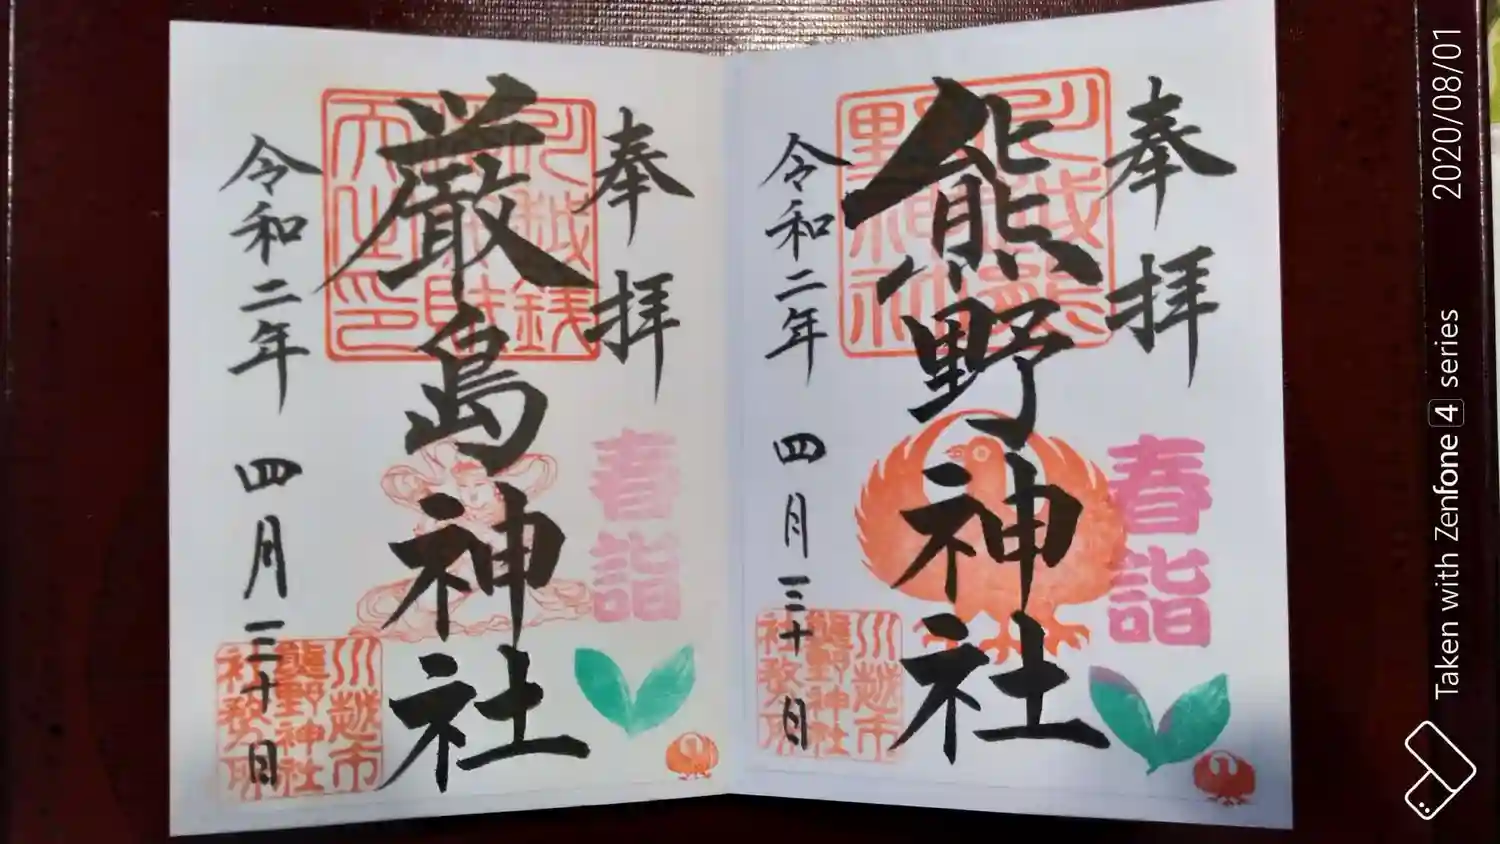 奉拝
春詣
熊野神社
川越熊野神社
令和二年 四月三十日
川越市
熊野神社
社務所
奉拝
春詣
厳島神社
令和二年 四月三十日
川越市
熊野神社
社務所
2020/08/01
Taken with Zenfone 4 series